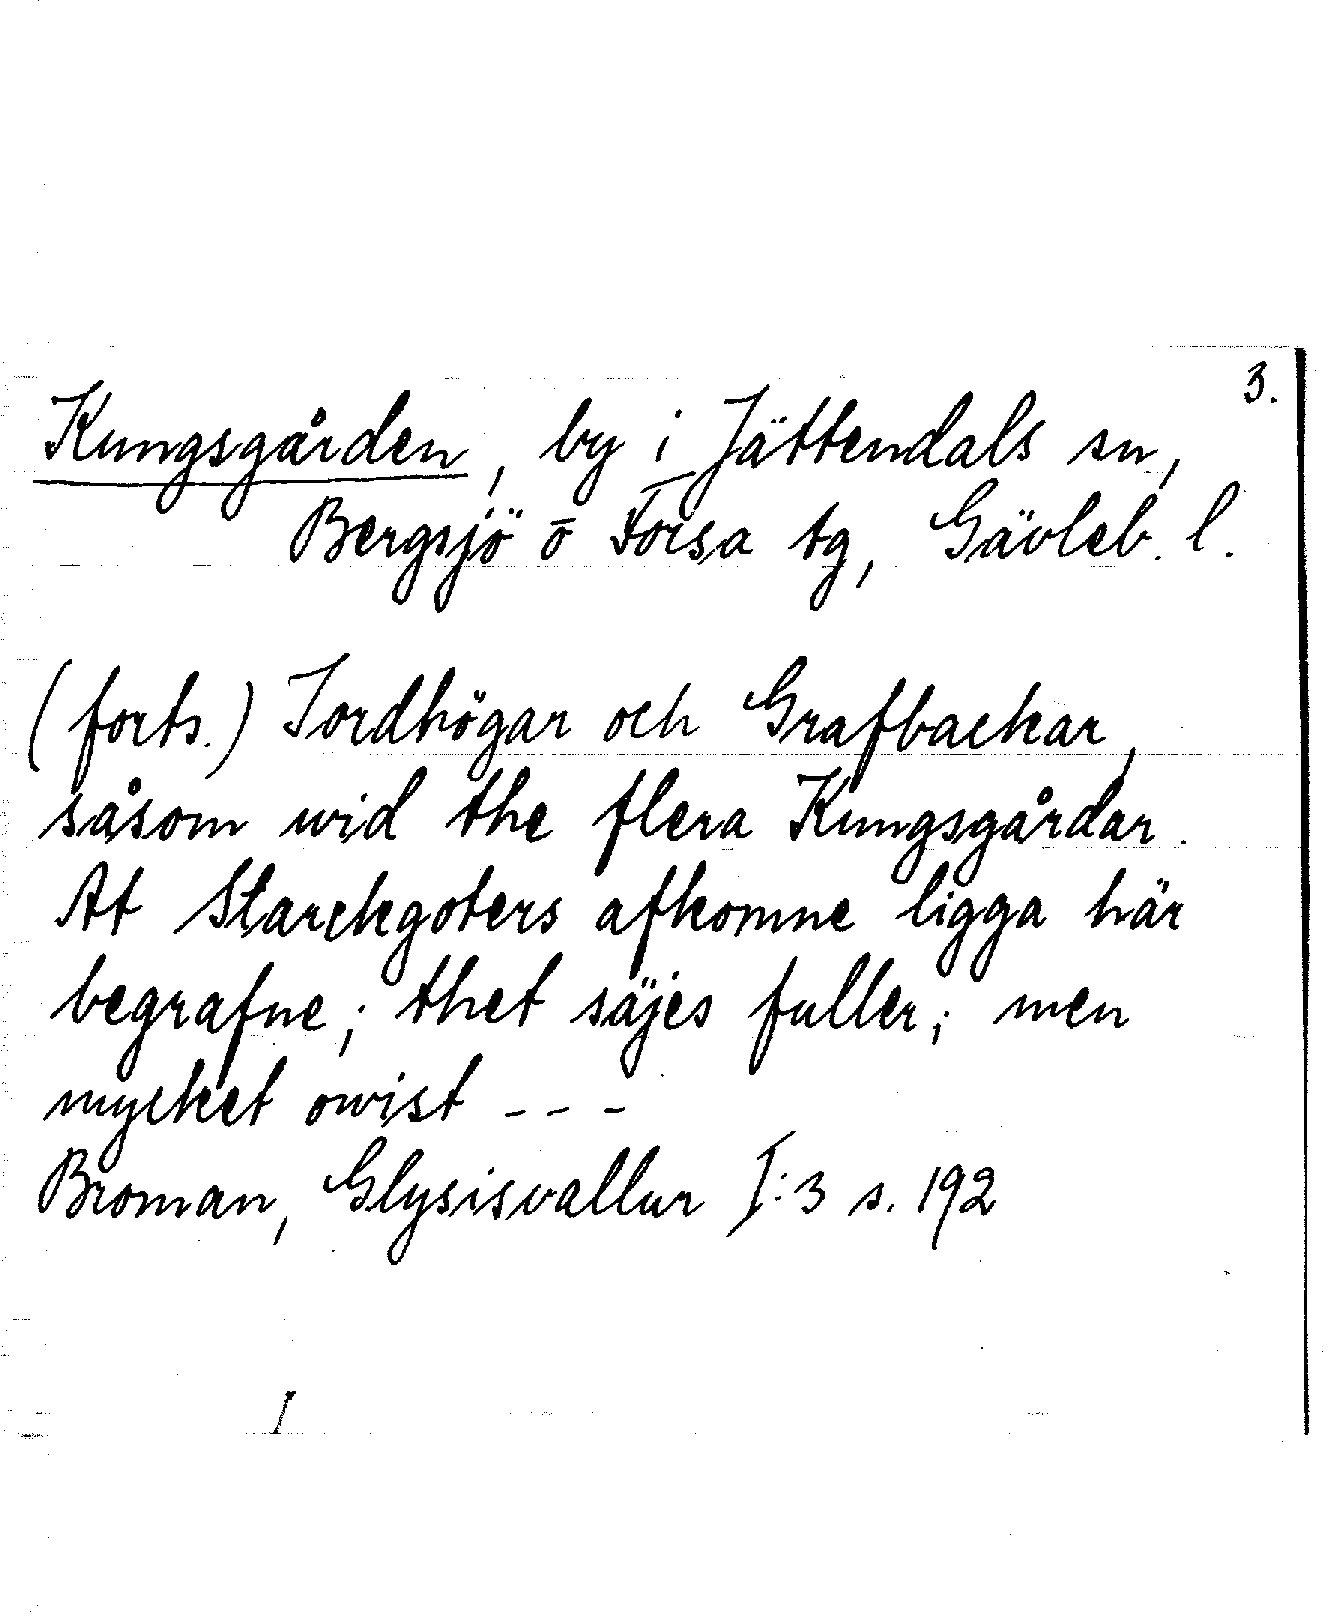 3.
Kungsgården, by i Jättendals sn,
Bergsjö o Forsa tg, Gävleb. l.
(forts.) Jordhögar och Grafbackar,
såsom wid the flera Kungsgårdar.
At Starckgoters afkomne ligga här
begrafne; thet säjes fuller; men
mycket owist ---
Broman, Glysisvallur I:3 s. 192
I